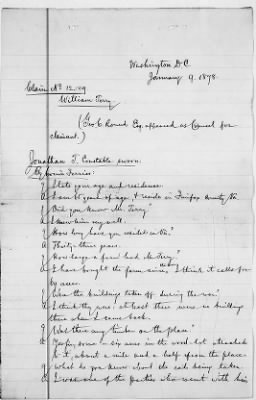 Washington D.C.
January 9, 1878.
Claim No 12,109
William Terry
( Esq. appeared as Counsel for
claimant.)
Jonathan T. Constable sworn.
By Ferriss:
Q State your age and residence.
A I am 60 years of age & reside in Fairfax County Va.
Q Did you know Mr. Terry?
A I knew him very well.
Q How long have you resided in Va.?
A Thirty-three years.
Q How large a farm had Mr. Terry?
A I have bought the farm since, I think it calls for
acres.
Q Was the buildings taken off during the war?
A I think they was - at least there were no buildings
there when I came back.
Q Was there any timber on the place?
A Yes sir, some - six acres in the wood-lot attached
to it, about a mile and a half from the place.
Q What do you know about the oats being taken?
A I was one of the parties who went with him